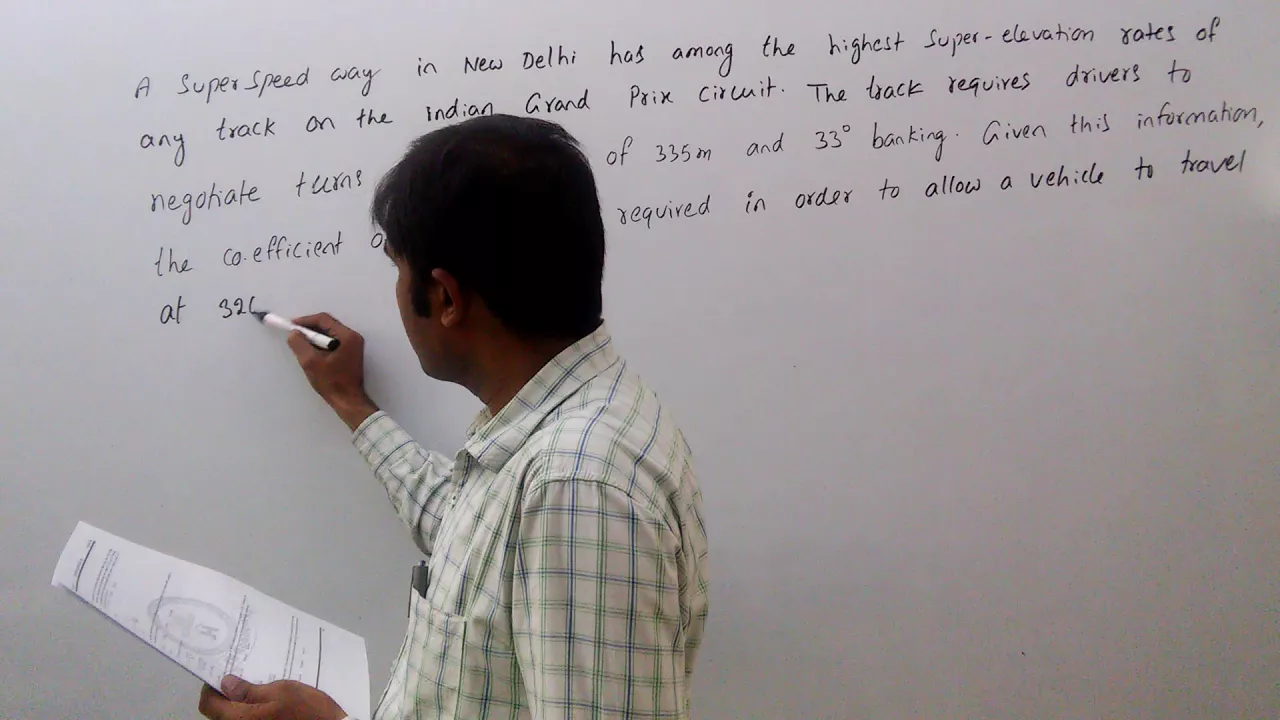 A Superspeed way in New Delhi has among the highest super-elevation rates of
any track on the Indian Grand Prix Circuit. The track requires drivers to
negotiate turns of 335m and 33° banking. Given this information,
the co.efficient required in order to allow a vehicle to travel
at 320